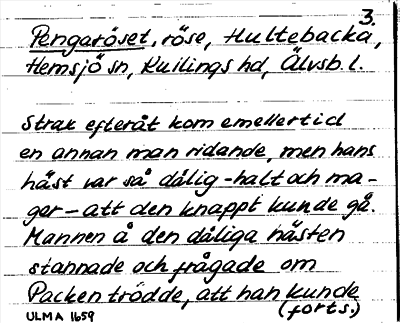 3.
Pengaröset, röse, Hultebacka,
Hemsjö sn, Kullings hd, Älvsb. l.
Strax efteråt kom emellertid
en annan man ridande, men hans
häst var så dålig - halt och ma-
ger - att den knappt kunde gå.
Mannen å den dåliga hästen
stannade och frågade om
Packen trodde, att han kunde
(forts.)
ULMA 1659